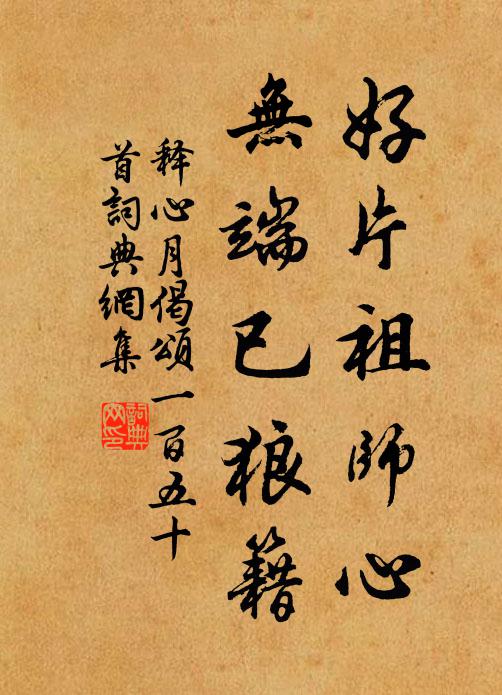 好片祖師心
無端已狼籍
释心月偈頌一百五十
首詞典網集
詞典網印